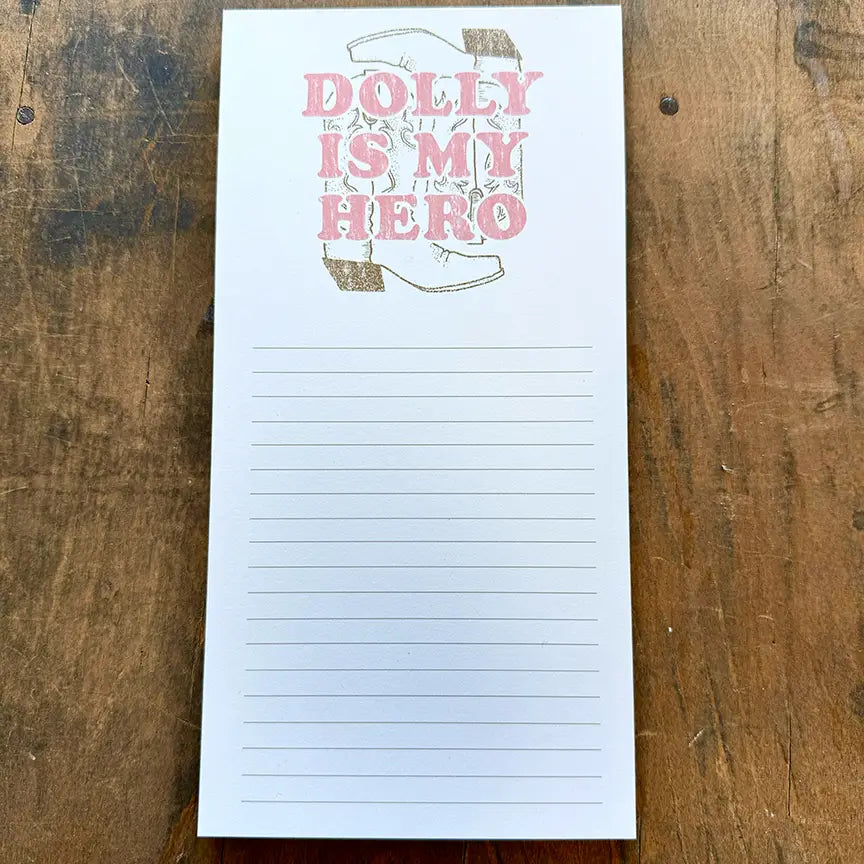 DOLLY
IS MY
HERO